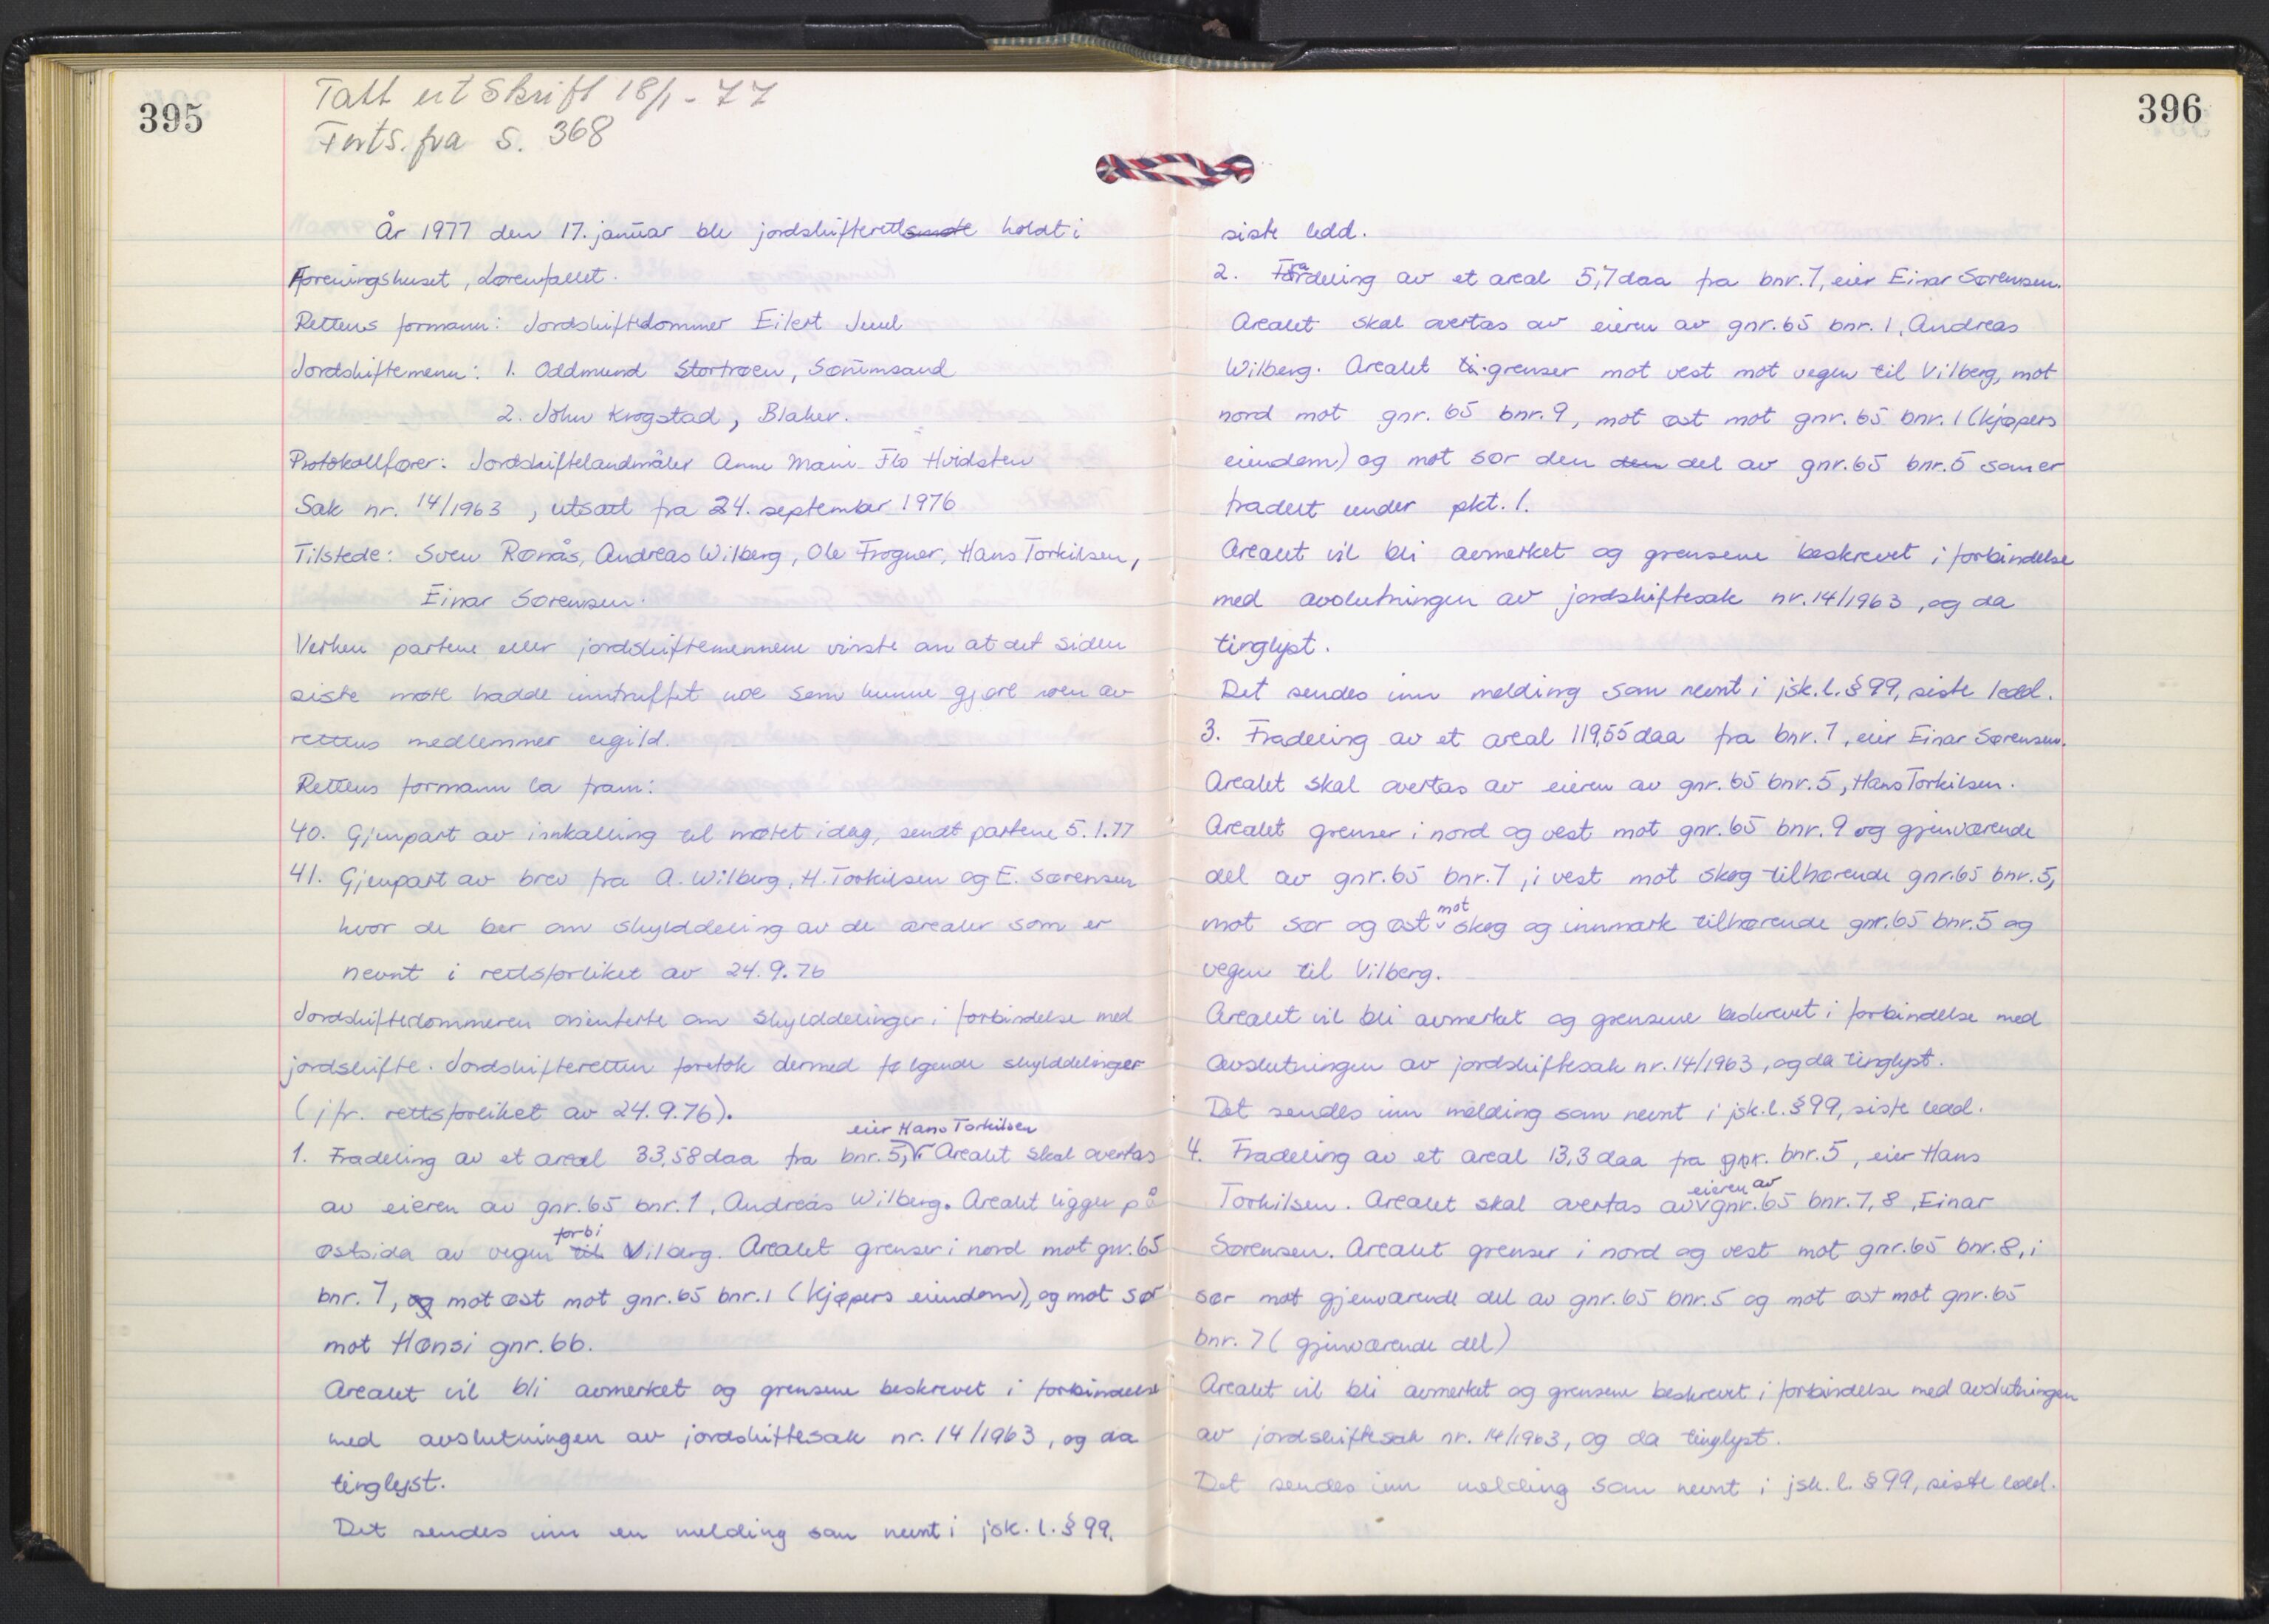 395
Tatt utskrift 18/1-77
Forts. fra s. 368
År 1977 den 17. januar ble jordskifterett holdt i
Foreningshuset, Lørenfallet.
Rettens formann: Jordskiftedommer Eilert Juul
Jordskiftemenn: 1. Oddmund Stortrøen, Sørumsand
2. John Krogstad, Blaker.
Protokollfører: Jordskiftelandmåler Anne Marie Flo Hvidsten
Sak nr. 14/1963, utsatt fra 24. september 1976
Tilstede: Sven Rønås, Andreas Wilberg, Ole Frogner, Hans Torkilsen,
Einar Sørensen.
Verken partene eller jordskiftemennene visste om at det siden
siste møte hadde inntruffet noe som kunne gjøre noen av
rettens medlemmer ugild.
Rettens formann la fram:
40. Gjenpart av innkalling til møtet idag, sendt partene 5.1.77
41. Gjenpart av brev fra A. Wilberg, H. Torkilsen og E. Sørensen
hvor de ber om skylddeling av de arealer som er
nevnt i rettsforliket av 24.9.76
Jordskiftedommeren orienterte om skylddelinger i forbindelse med
jordskifte. Jordskifteretten foretok dermed følgende skylddelinger
(jfr. rettsforliket av 24.9.76).
1. Fradeling av et areal 33,58 daa fra bnr. 5, eier Hans Torkilsen. Arealet skal overtas
av eieren av gnr. 65 bnr. 1, Andreas Wilberg. Arealet ligger på
østsida av vegen forbi Vilberg. Arealet grenser i nord mot gnr. 65
bnr. 7, mot øst mot gnr. 65 bnr. 1 (kjøpers eiendom), og mot sør
mot Hønsi gnr. 66.
Arealet vil bli avmerket og grensene beskrevet i forbindelse
med avslutningen av jordskiftesak nr. 14/1963, og da
tinglyst.
Det sendes inn en melding som nevnt i jsk.l. § 99.
396
siste ledd.
2. Fradeling av et areal 5,7 daa fra bnr. 7, eier Einar Sørensen.
Arealet skal overtas av eieren av gnr. 65 bnr. 1, Andreas
Wilberg. Arealet grenser mot vest mot vegen til Vilberg, mot
nord mot gnr. 65 bnr. 9, mot øst mot gnr. 65 bnr. 1 (kjøpers
eiendom) og mot sør den del av gnr. 65 bnr. 5 som er
fradelt under pkt. 1.
Arealet vil bli avmerket og grensene beskrevet i forbindelse
med avslutningen av jordskiftesak nr. 14/1963, og da
tinglyst.
Det sendes inn melding som nevnt i jsk.l. § 99, siste ledd.
3. Fradeling av et areal 119,55 daa fra bnr. 7, eier Einar Sørensen.
Arealet skal overtas av eieren av gnr. 65 bnr. 5, Hans Torkilsen.
Arealet grenser i nord og vest mot gnr. 65 bnr. 9 og gjenværende
del av gnr. 65 bnr. 7, i vest mot skog tilhørende gnr. 65 bnr. 5,
mot sør og øst mot skog og innmark tilhørende gnr. 65 bnr. 5 og
vegen til Vilberg.
Arealet vil bli avmerket og grensene beskrevet i forbindelse med
avslutningen av jordskiftesak nr. 14/1963, og da tinglyst.
Det sendes inn melding som nevnt i jsk.l. § 99, siste ledd.
4. Fradeling av et areal 13,3 daa fra gnr. bnr. 5, eier Hans
Torkilsen. Arealet skal overtas av eieren av gnr. 65 bnr. 7, 8, Einar
Sørensen. Arealet grenser i nord og vest mot gnr. 65 bnr. 8, i
sør mot gjenværende del av gnr. 65 bnr. 5 og mot øst mot gnr. 65
bnr. 7 (gjenværende del)
Arealet vil bli avmerket og grensene beskrevet i forbindelse med avslutningen
av jordskiftesak nr. 14/1963, og da tinglyst.
Det sendes inn melding som nevnt i jsk.l. § 99, siste ledd.